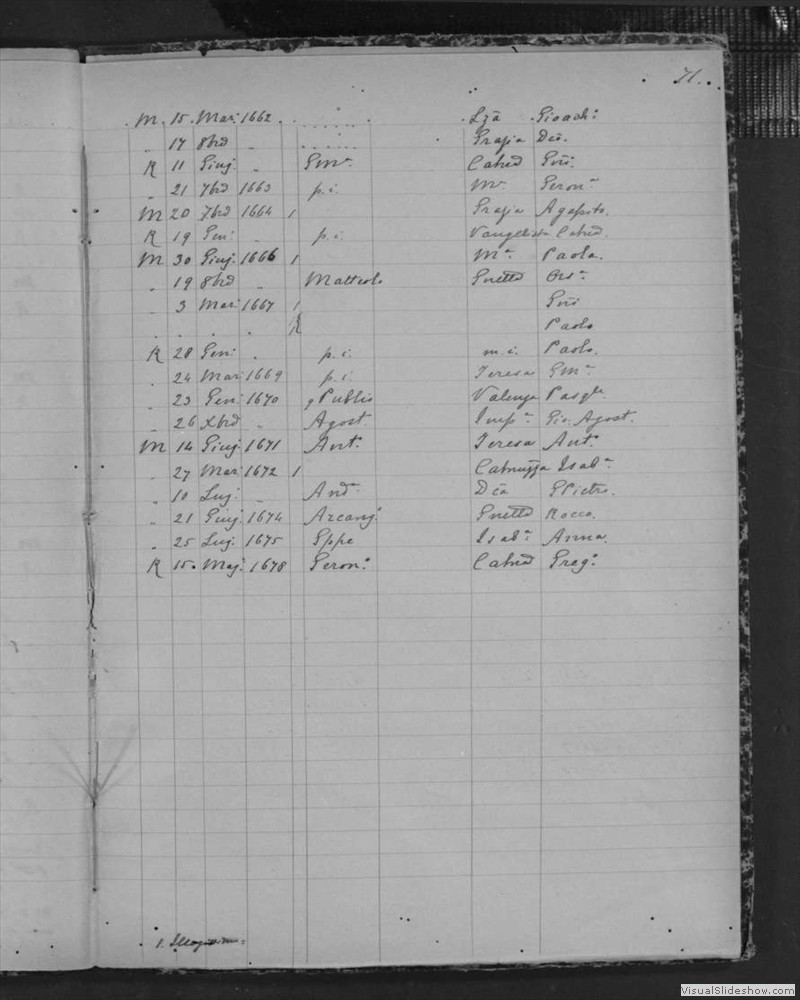 71...
M. 15. Mar: 1662. ...... Lzã Gioach:
„ 17 8brẽ „ ...... Grazia Dcã.
R 11 Giug: „ Gmᵃ Catnã Gñi:
„ 21 7brẽ 1663 p.i. Mᵃ Geronᵃ
M 20 7brẽ 1664 1 Grazia Agapito.
R 19 Gen: „ p.i. Vangelista Catnã.
M 30 Giug: 1666 1 Mᵃ Paola.
„ 19 8brẽ „ Matteolo Gnettã Orsᵃ
„ 3 Mar: 1667 1 Gñi
. . . . R Paolo
R 28 Gen: „ p.i. m.i. Paolo.
„ 24 Mar: 1669 p.i. Teresa Gmᵃ
„ 23 Gen: 1670 Publio Valenza Pasqlᵉ
„ 26 Xbrẽ „ Agost. Impᵃ Gio: Agost.
M 14 Giug: 1671 Ant: Teresa Ant:
„ 27 Mar: 1672 1 Catnuzza Isabᵃ
„ 10 Lug: „ Andᵃ Dcã GPietro.
„ 21 Giug: 1674 Arcang: Gnettã Rocca.
„ 25 Lug: 1675 Gppe Isabᵃ Anna.
R 15. Mag: 1678 Geron: Catnã Greg:
VisualSlideshow.com